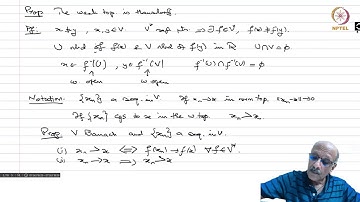 Prop. The weak top is Hausdorff.
Pf: x ≠ y, x, y ∈ V. V* ∃ f ∈ V*, f(x) ≠ f(y).
U nbd of f(x) & V nbd of f(y) in ℝ U∩V = φ
x ∈ f⁻¹(U), y ∈ f⁻¹(V) f⁻¹(U) ∩ f⁻¹(V) = φ
w. open w. open
Notation: {xₙ} a seq. in V. If xₙ → x in norm top. ‖xₙ-x‖→0
If {xₙ} cgs to x in the w. top xₙ ⇀ x.
Prop. V Banach and {xₙ} a seq. in V.
(i) xₙ ⇀ x ⟺ f(xₙ) → f(x) ∀ f ∈ V*.
(ii) xₙ → x ⟹ xₙ ⇀ x
NPTEL